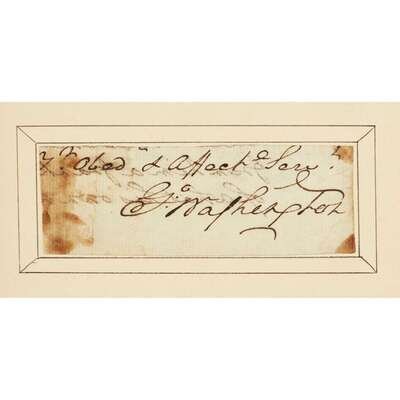 Yr. Obedt & Affecte Servt
Go: Washington